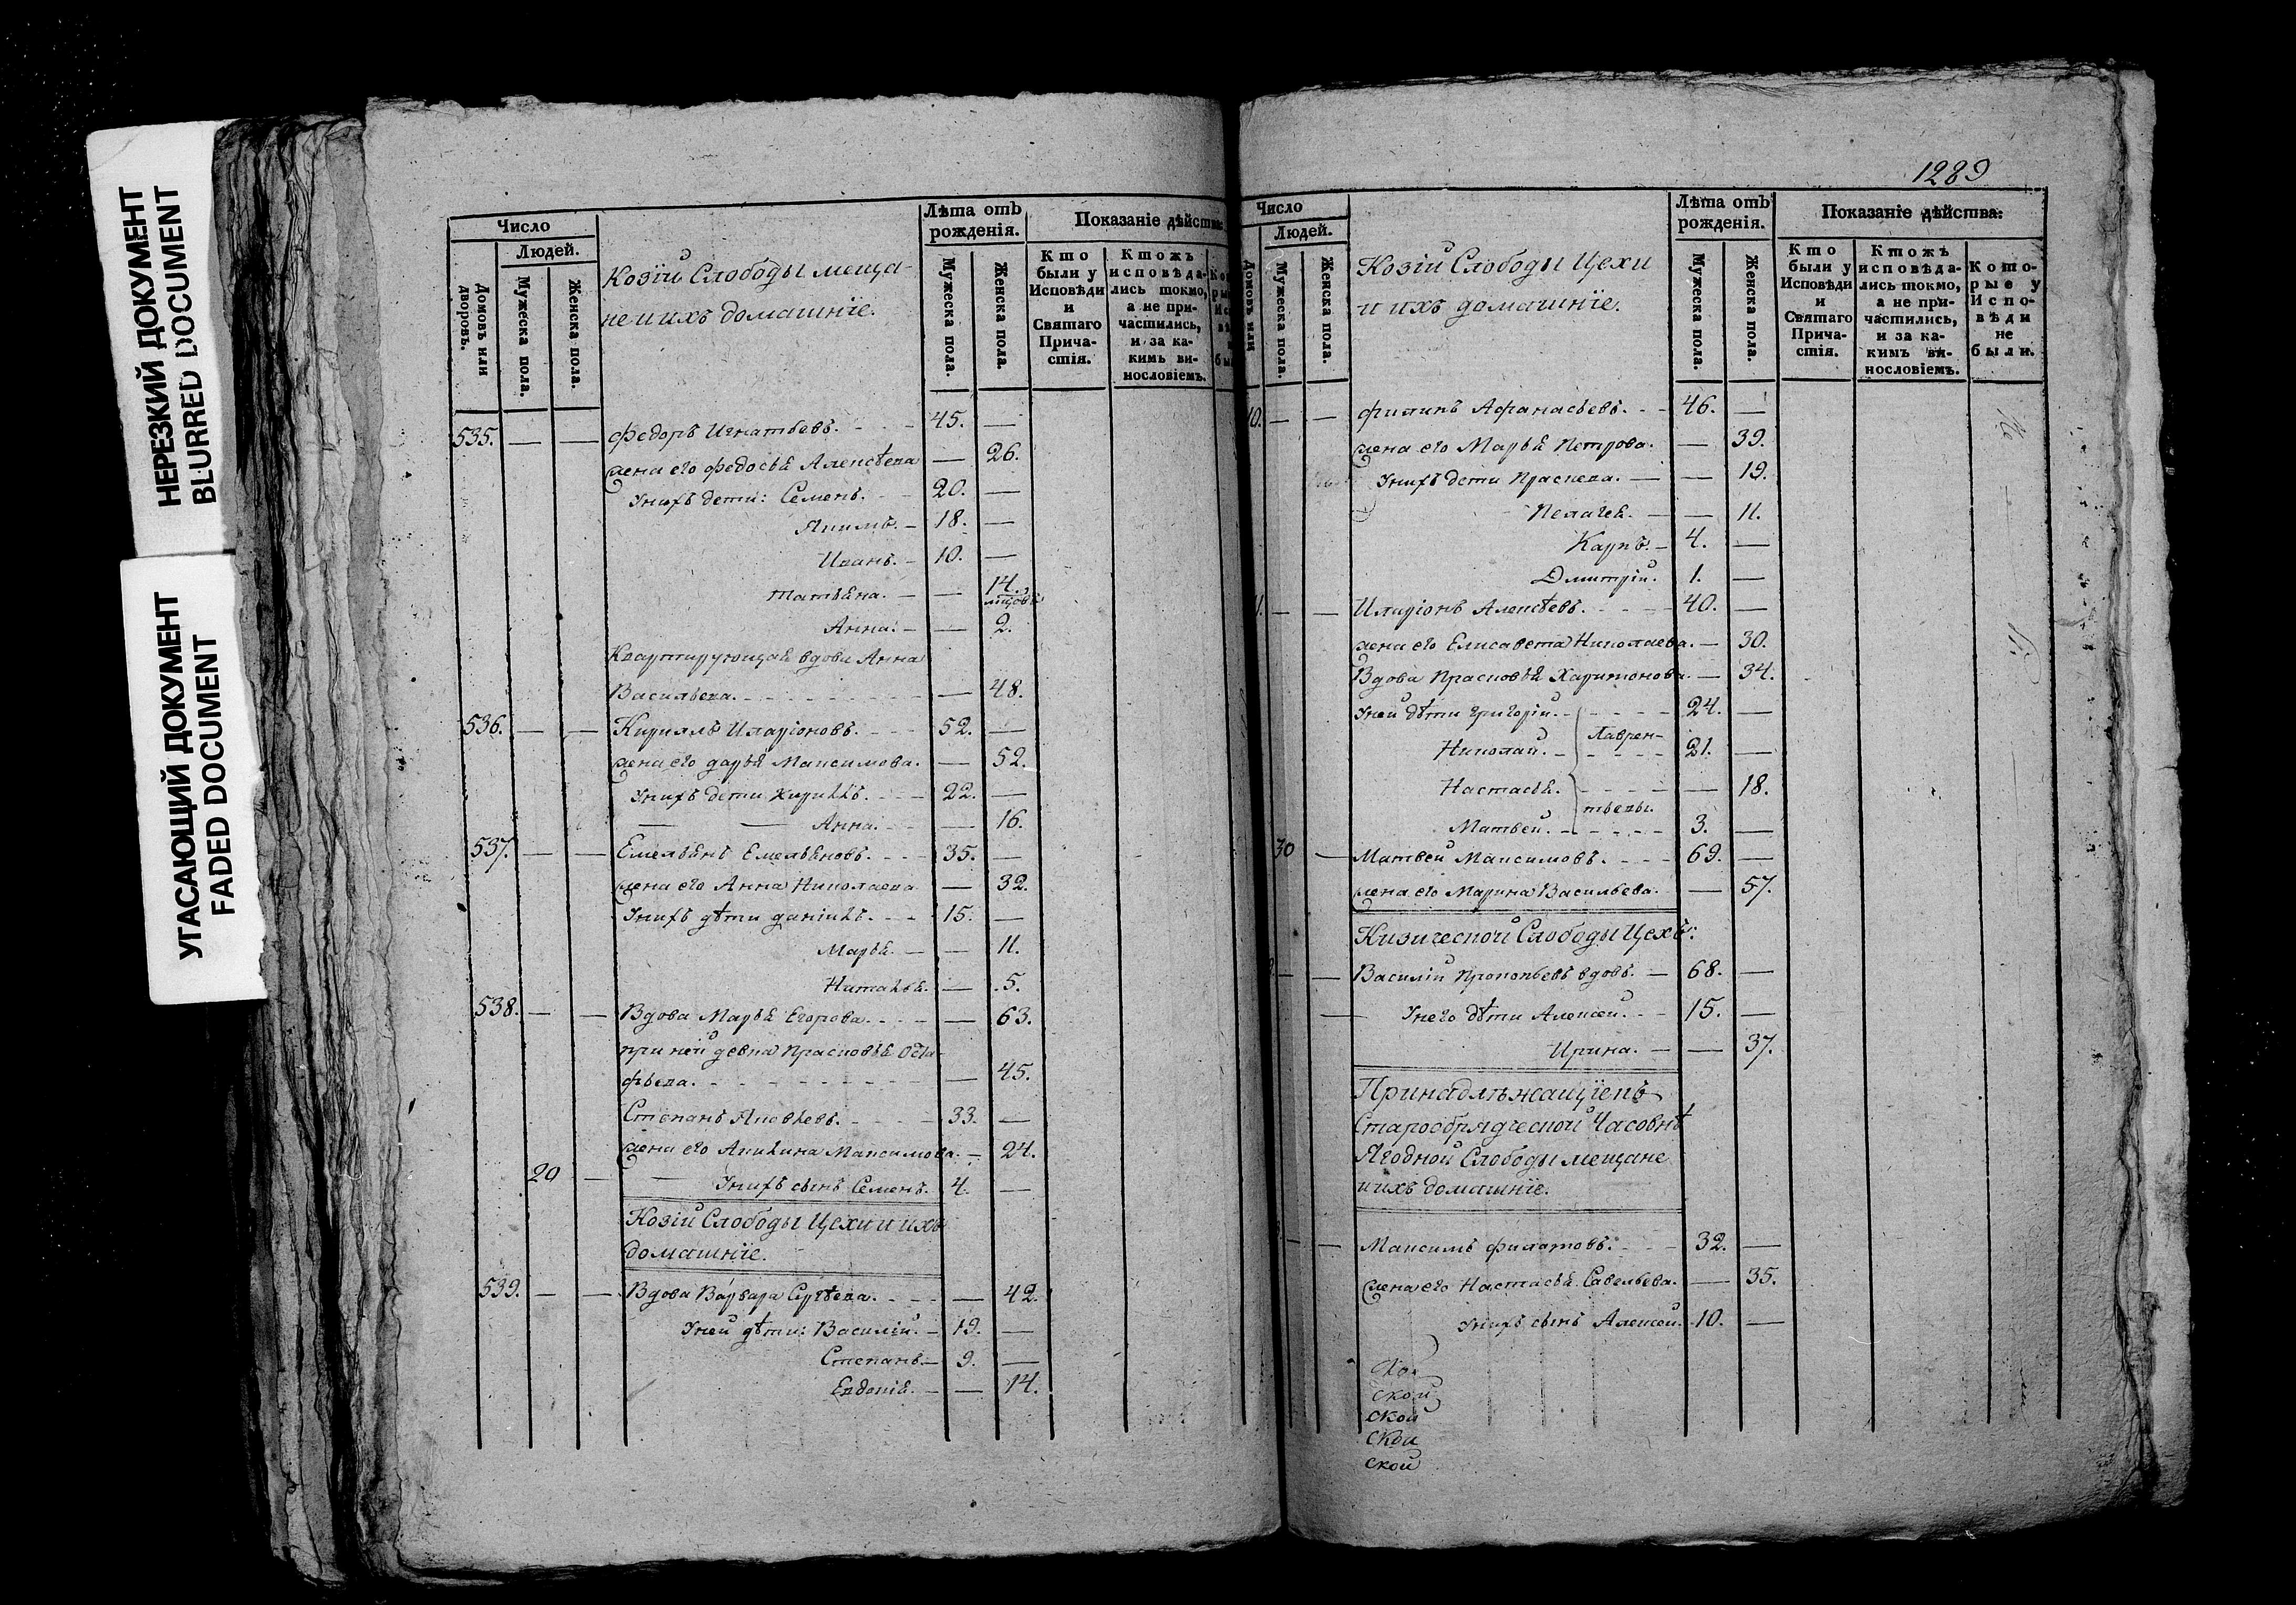 НЕРЕЗКИЙ ДОКУМЕНТ
BLURRED DOCUMENT
УГАСАЮЩИЙ ДОКУМЕНТ
FADED DOCUMENT
Число
Людей.
Домовъ или дворовъ.
Мужеска пола.
Женска пола.
Козій Слободы меща-
не и ихъ домашніе.
Лѣта отъ рожденія.
Мужеска пола.
Женска пола.
Показаніе дѣйства:
Кто были у Исповѣди и Святаго Прича-стія.
Ктожъ исповѣда-лись токмо, а не при-частились, и за ка-кимъ ви-нословіемъ.
535. — — Федоръ Игнатьевъ. 45. —
жена его Федосья Алексѣева — 26.
У нихъ дети: Семенъ. 20. —
Якимъ. 18. —
Иванъ. 10. —
Татьяна. — 14.
Анна. — 2.
Квартирующая вдова Анна
Васильева. — 48.
536. — — Кирилъ Иларіоновъ. 52. —
жена его Дарья Максимова. — 52.
У нихъ дети 22. —
— — Анна. — 16.
537. — — Емельянъ Емельяновъ. 35. —
жена его Анна Николаева — 32.
У нихъ дѣти Даніилъ. 15. —
Марья. — 11.
Наталья. — 5.
538. — — Вдова Марья Егорова. — 63.
при ней девка Прасковья Оста-
фьева. — 45.
Степанъ Яковлевъ. 33. —
жена его Акилина Максимова. — 24.
29 — — У нихъ сынъ Семенъ. 4. —
Козій Слободы Цехи и ихъ
домашніе.
539. — — Вдова Варвара Сергѣева. — 42.
У ней дѣти: Василій. 19. —
Степанъ. 9. —
Евдокія. — 14.
1289
Число
Людей.
Домовъ или
Мужеска пола.
Женска пола.
Козій Слободы Цехи
и ихъ домашніе.
Лѣта отъ рожденія.
Мужеска пола.
Женска пола.
Показаніе дѣйства:
Кто были у Исповѣди и Святаго Прича-стія.
Ктожъ исповѣда-лись токмо, а не при-частились, и за ка-кимъ ви-нословіемъ.
Кото-рые у Испо-вѣди не были.
— — Филипъ Афанасьевъ. 46. —
жена его Марья Петрова. — 39.
У нихъ дети Праскева. — 19.
Пелагея. — 11.
Карпъ. 4. —
Дмитрій. 1. —
— — Иларіонъ Алексѣевъ. 40. —
жена его Елисавета Николаева. — 30.
Вдова Прасковья Харитонова. — 34.
У ней дѣти Григорій. 24. —
Лаврен-
Николай. 21. —
Настасья. — 18.
тьевы.
Матвей. 3. —
30 — Матвей Максимовъ. 69. —
жена его Марина Васильева. — 57.
Кизической Слободы Цехъ:
— — Василій Прокопьевъ вдовъ. 68. —
— У него дѣти Алексей. 15. —
Ирина. — 37.
Принадлѣжащіе къ
Старообрядческой Часовнѣ
Ягодной Слободы мещане
и ихъ домашніе.
— — Максимъ Филатовъ. 32. —
жена его Настасья Савельева. — 35.
У нихъ сынъ Алексей. 10. —
ской
ской
ской
ской